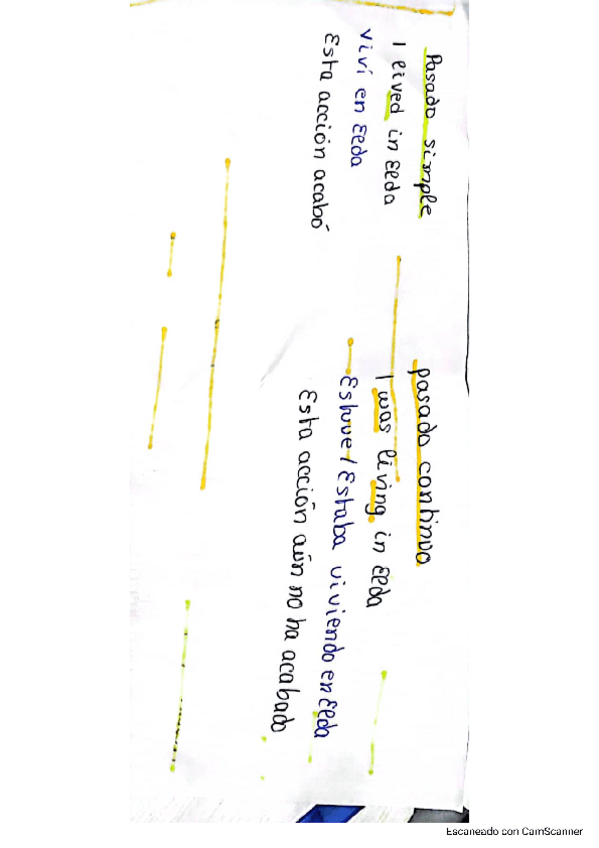 Pasado simple
I lived in Elda
viví en Elda
Esta acción acabó
pasado continuo
I was living in Elda
Estuve/Estaba viviendo en Elda
Esta acción aún no ha acabado
Escaneado con CamScanner